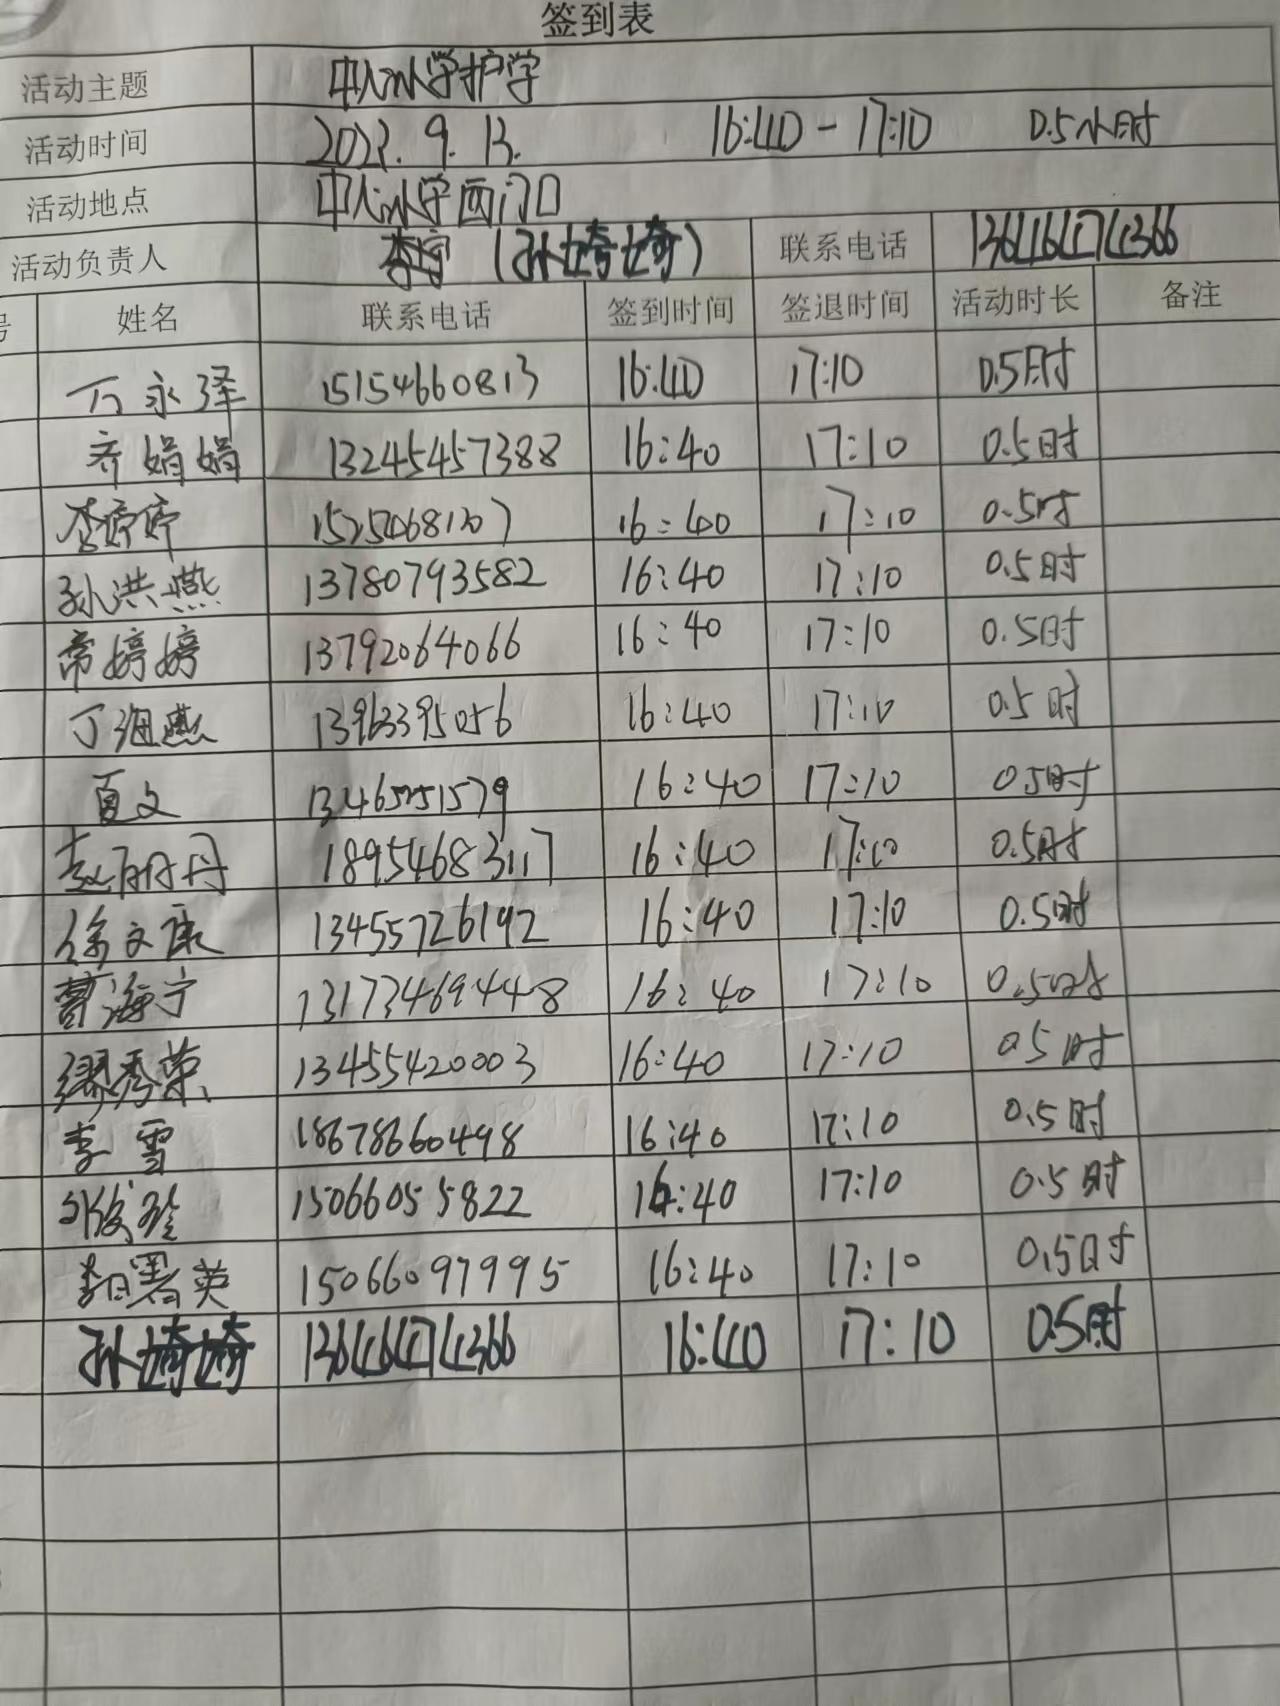 签到表
活动主题 中心小学护学
活动时间 2023. 9. 13. 16:40 - 17:10 0.5小时
活动地点 中心小学西门口
活动负责人 李宁 (孙埼埼) 联系电话 13646474366
号 姓名 联系电话 签到时间 签退时间 活动时长 备注
万永泽 15154660813 16:40 17:10 0.5时
齐娟娟 13245457388 16:40 17:10 0.5时
李婷婷 16:40 17:10 0.5时
孙洪燕 13780793582 16:40 17:10 0.5时
常婷婷 13792064066 16:40 17:10 0.5时
丁海燕 13963395056 16:40 17:10 0.5时
夏文 16:40 17:10 0.5时
赵丹丹 18954683117 16:40 17:10 0.5时
徐文康 13455726192 16:40 17:10 0.5时
海宁 13173469448 16:40 17:10 0.5时
缪秀荣 13455420003 16:40 17:10 0.5时
李雪 18678660498 16:40 17:10 0.5时
15066055822 16:40 17:10 0.5时
英 15066097995 16:40 17:10 0.5时
孙埼埼 13646474366 16:40 17:10 0.5时